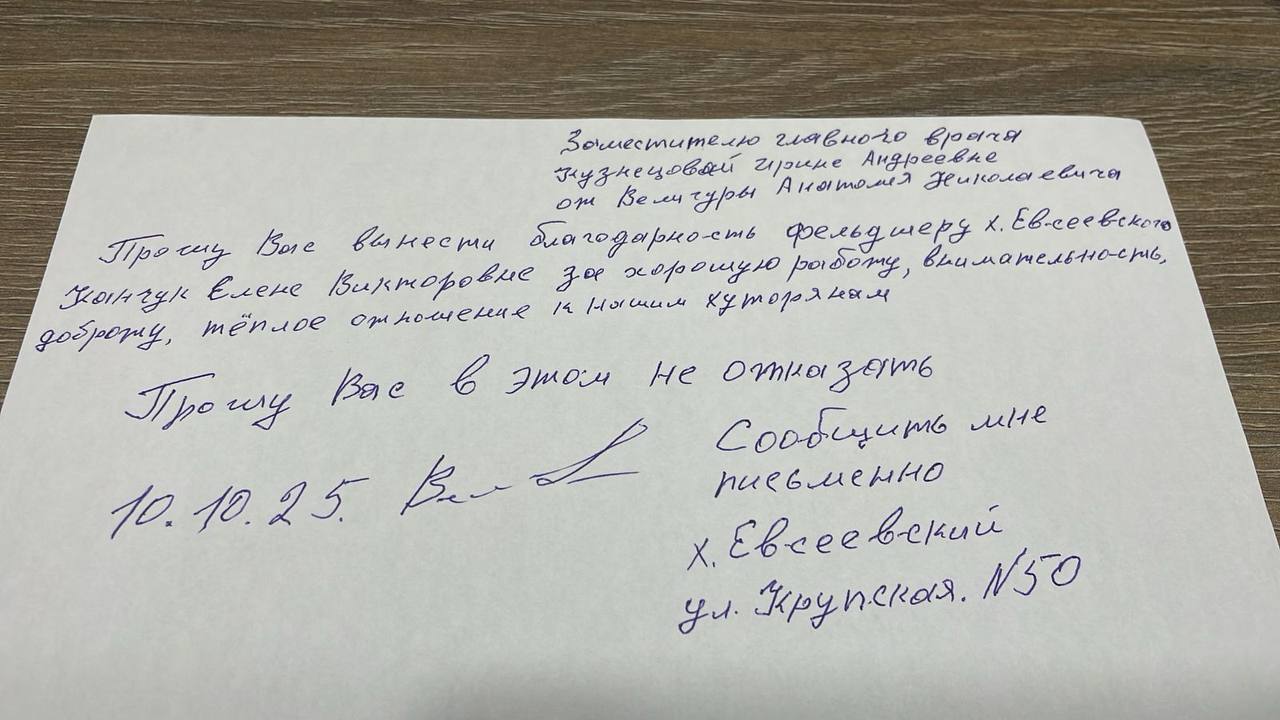 Заместителю главного врача
Кузнецовой Ирине Андреевне
от Величуры Анатолия Николаевича
Прошу Вас вынести благодарность фельдшеру х. Евсеевского
Канчук Елене Викторовне за хорошую работу, внимательность,
доброту, тёплое отношение к нашим хуторянам
Прошу Вас в этом не отказать
Сообщить мне
письменно
10.10.25.
х. Евсеевский
ул. Крупская. N50